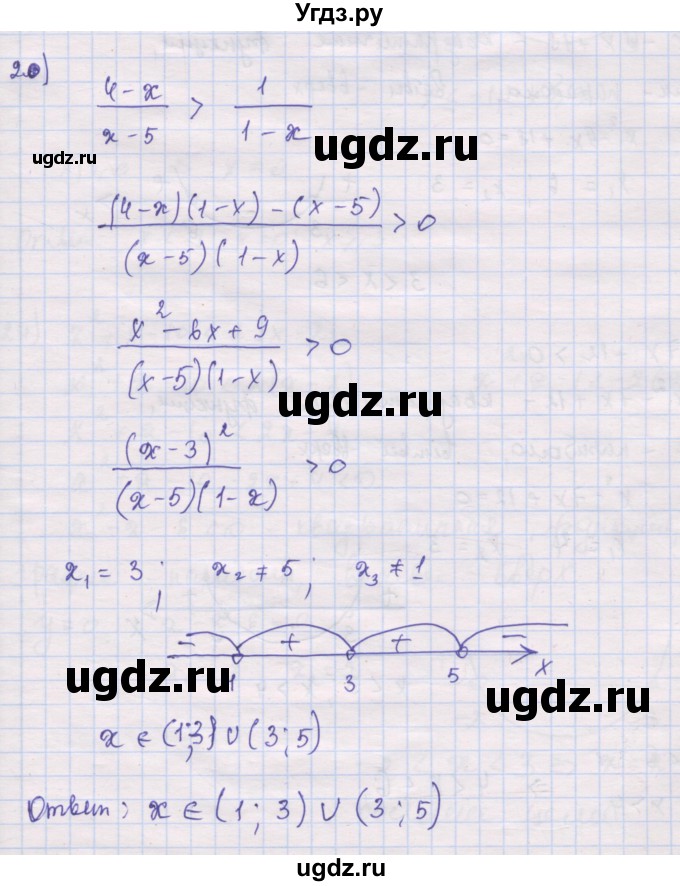 Угдз.ру
20)
(4 - x)/(x - 5) > 1/(1 - x)
ugdz.ru
ugdz.ru
((4 - x)(1 - x) - (x - 5))/((x - 5)(1 - x)) > 0
(x² - 6x + 9)/((x - 5)(1 - x)) > 0
ugdz.ru
(x - 3)²/((x - 5)(1 - x)) > 0
x₁ = 3 ; x₂ ≠ 5 ; x₃ ≠ 1
- + + -
1 3 5 x
ugdz.ru ugdz.ru
x ∈ (1;3) ∪ (3;5)
ugdz.ru
Ответ: x ∈ (1; 3) ∪ (3; 5)
ugdz.ru